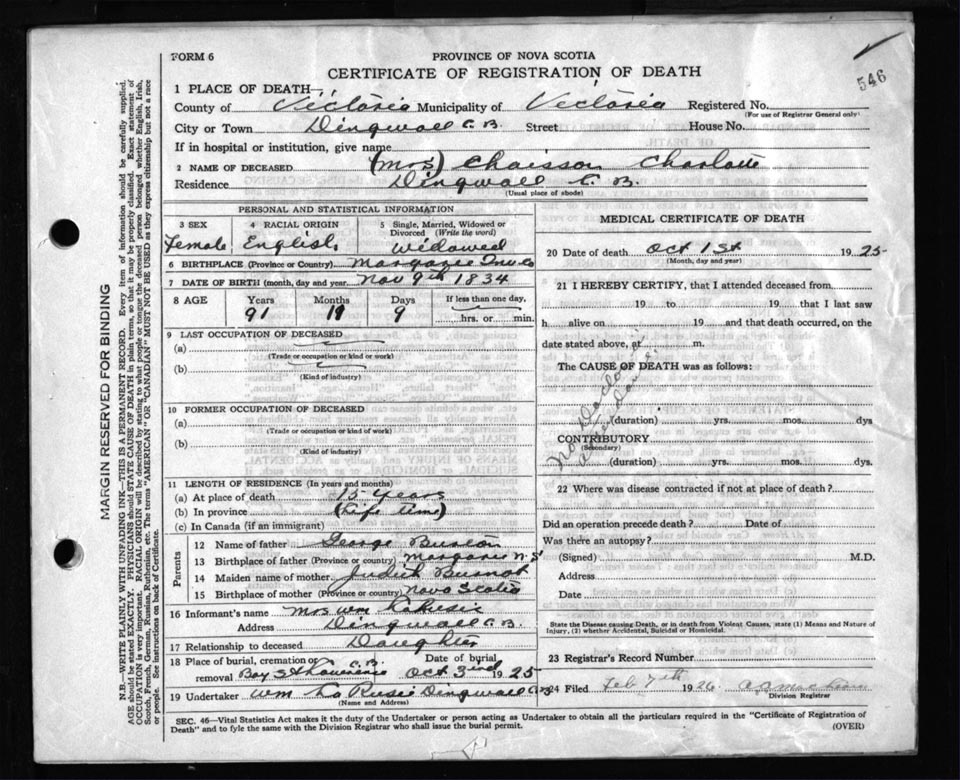 FORM 6
PROVINCE OF NOVA SCOTIA
CERTIFICATE OF REGISTRATION OF DEATH
546
1 PLACE OF DEATH—
County of Victoria Municipality of Victoria Registered No.
(For use of Registrar General only)
City or Town Dingwall C. B. Street House No.
If in hospital or institution, give name
2 NAME OF DECEASED (Mrs) Chaisson Charlotte
Residence Dingwall C. B.
(Usual place of abode)
PERSONAL AND STATISTICAL INFORMATION
3 SEX 4 RACIAL ORIGIN 5 Single, Married, Widowed or Divorced (Write the word)
Female English Widowed
6 BIRTHPLACE (Province or Country) Margaree Inv Co
7 DATE OF BIRTH (month, day and year) Nov 9th 1834
8 AGE Years Months Days If less than one day,
91 9 hrs. or min.
9 LAST OCCUPATION OF DECEASED
(a)
(Trade or occupation or kind or work)
(b)
(Kind of industry)
10 FORMER OCCUPATION OF DECEASED
(a)
(Trade or occupation or kind of work)
(b)
(Kind of industry)
11 LENGTH OF RESIDENCE (In years and months)
(a) At place of death 15 years
(b) In province (Life time)
(c) In Canada (if an immigrant)
Parents
12 Name of father George
13 Birthplace of father (Province or country) Margaree N. S.
14 Maiden name of mother Judith
15 Birthplace of mother (Province or country) Nova Scotia
16 Informant's name Mrs Wm LaKusic
Address Dingwall C. B.
17 Relationship to deceased Daughter
18 Place of burial, cremation or removal Bay St Lawrence C. B. Date of burial Oct 3rd 1925
19 Undertaker Wm LaKusic Dingwall C. B.
(Name and Address)
MEDICAL CERTIFICATE OF DEATH
20 Date of death Oct 1st 1925
(Month, day and year)
21 I HEREBY CERTIFY, that I attended deceased from
19 to 19 that I last saw
h alive on 19 and that death occurred, on the
date stated above, at m.
The CAUSE OF DEATH was as follows:
No Doctor
(duration) yrs. mos. dys
CONTRIBUTORY
(Secondary)
(duration) yrs. mos. dys.
22 Where was disease contracted if not at place of death?
Did an operation precede death? Date of
Was there an autopsy?
(Signed) M.D.
Address
Date
State the Disease causing Death, or in death from Violent Causes, state (1) Means and Nature of
Injury, (2) whether Accidental, Suicidal or Homicidal.
23 Registrar's Record Number
24 Filed Feb 7th 1926
Division Registrar
SEC. 46—Vital Statistics Act makes it the duty of the Undertaker or person acting as Undertaker to obtain all the particulars required in the "Certificate of Registration of
Death" and to fyle the same with the Division Registrar who shall issue the burial permit. (OVER)
MARGIN RESERVED FOR BINDING
N.B.—WRITE PLAINLY WITH UNFADING INK—THIS IS A PERMANENT RECORD. Every item of information should be carefully supplied.
AGE should be stated EXACTLY. PHYSICIANS should STATE CAUSE OF DEATH in plain terms, so that it may be properly classified. Exact statement of
OCCUPATION is very important. RACIAL ORIGIN will be described by stating to what people or tongue the deceased person belonged whether English, Irish,
Scotch, French, German, Russian, Ruthenian, etc. The terms "AMERICAN" OR "CANADIAN" MUST NOT BE USED as they express citizenship but not a race
or people. See instructions on back of Certificate.